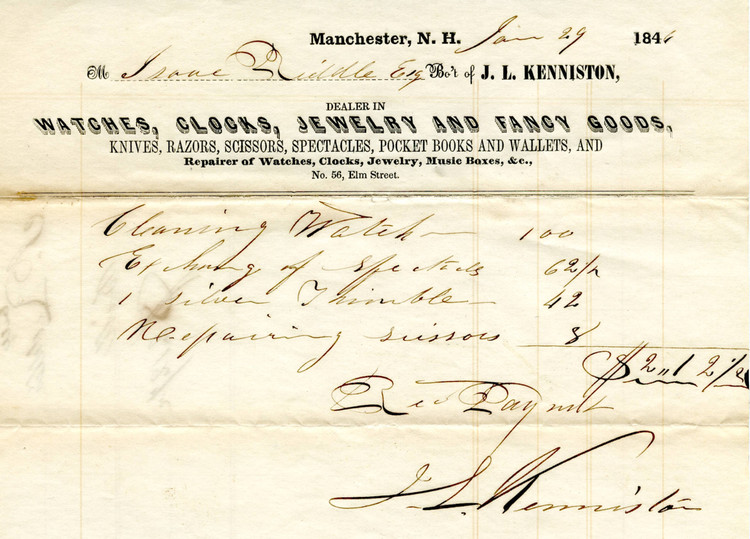 Manchester, N. H. Jan 29 184
M Isaac Riddle Esq Bo't of J. L. KENNISTON,
DEALER IN
WATCHES, CLOCKS, JEWELRY AND FANCY GOODS,
KNIVES, RAZORS, SCISSORS, SPECTACLES, POCKET BOOKS AND WALLETS, AND
Repairer of Watches, Clocks, Jewelry, Music Boxes, &c.,
No. 56, Elm Street.
Cleaning Watch 100
Exchang of Spectcls 62 1/2
1 silver Thimble 42
Repairing scissors 8
$2"12 1/2
Rec Paymt
J. L. Kenniston